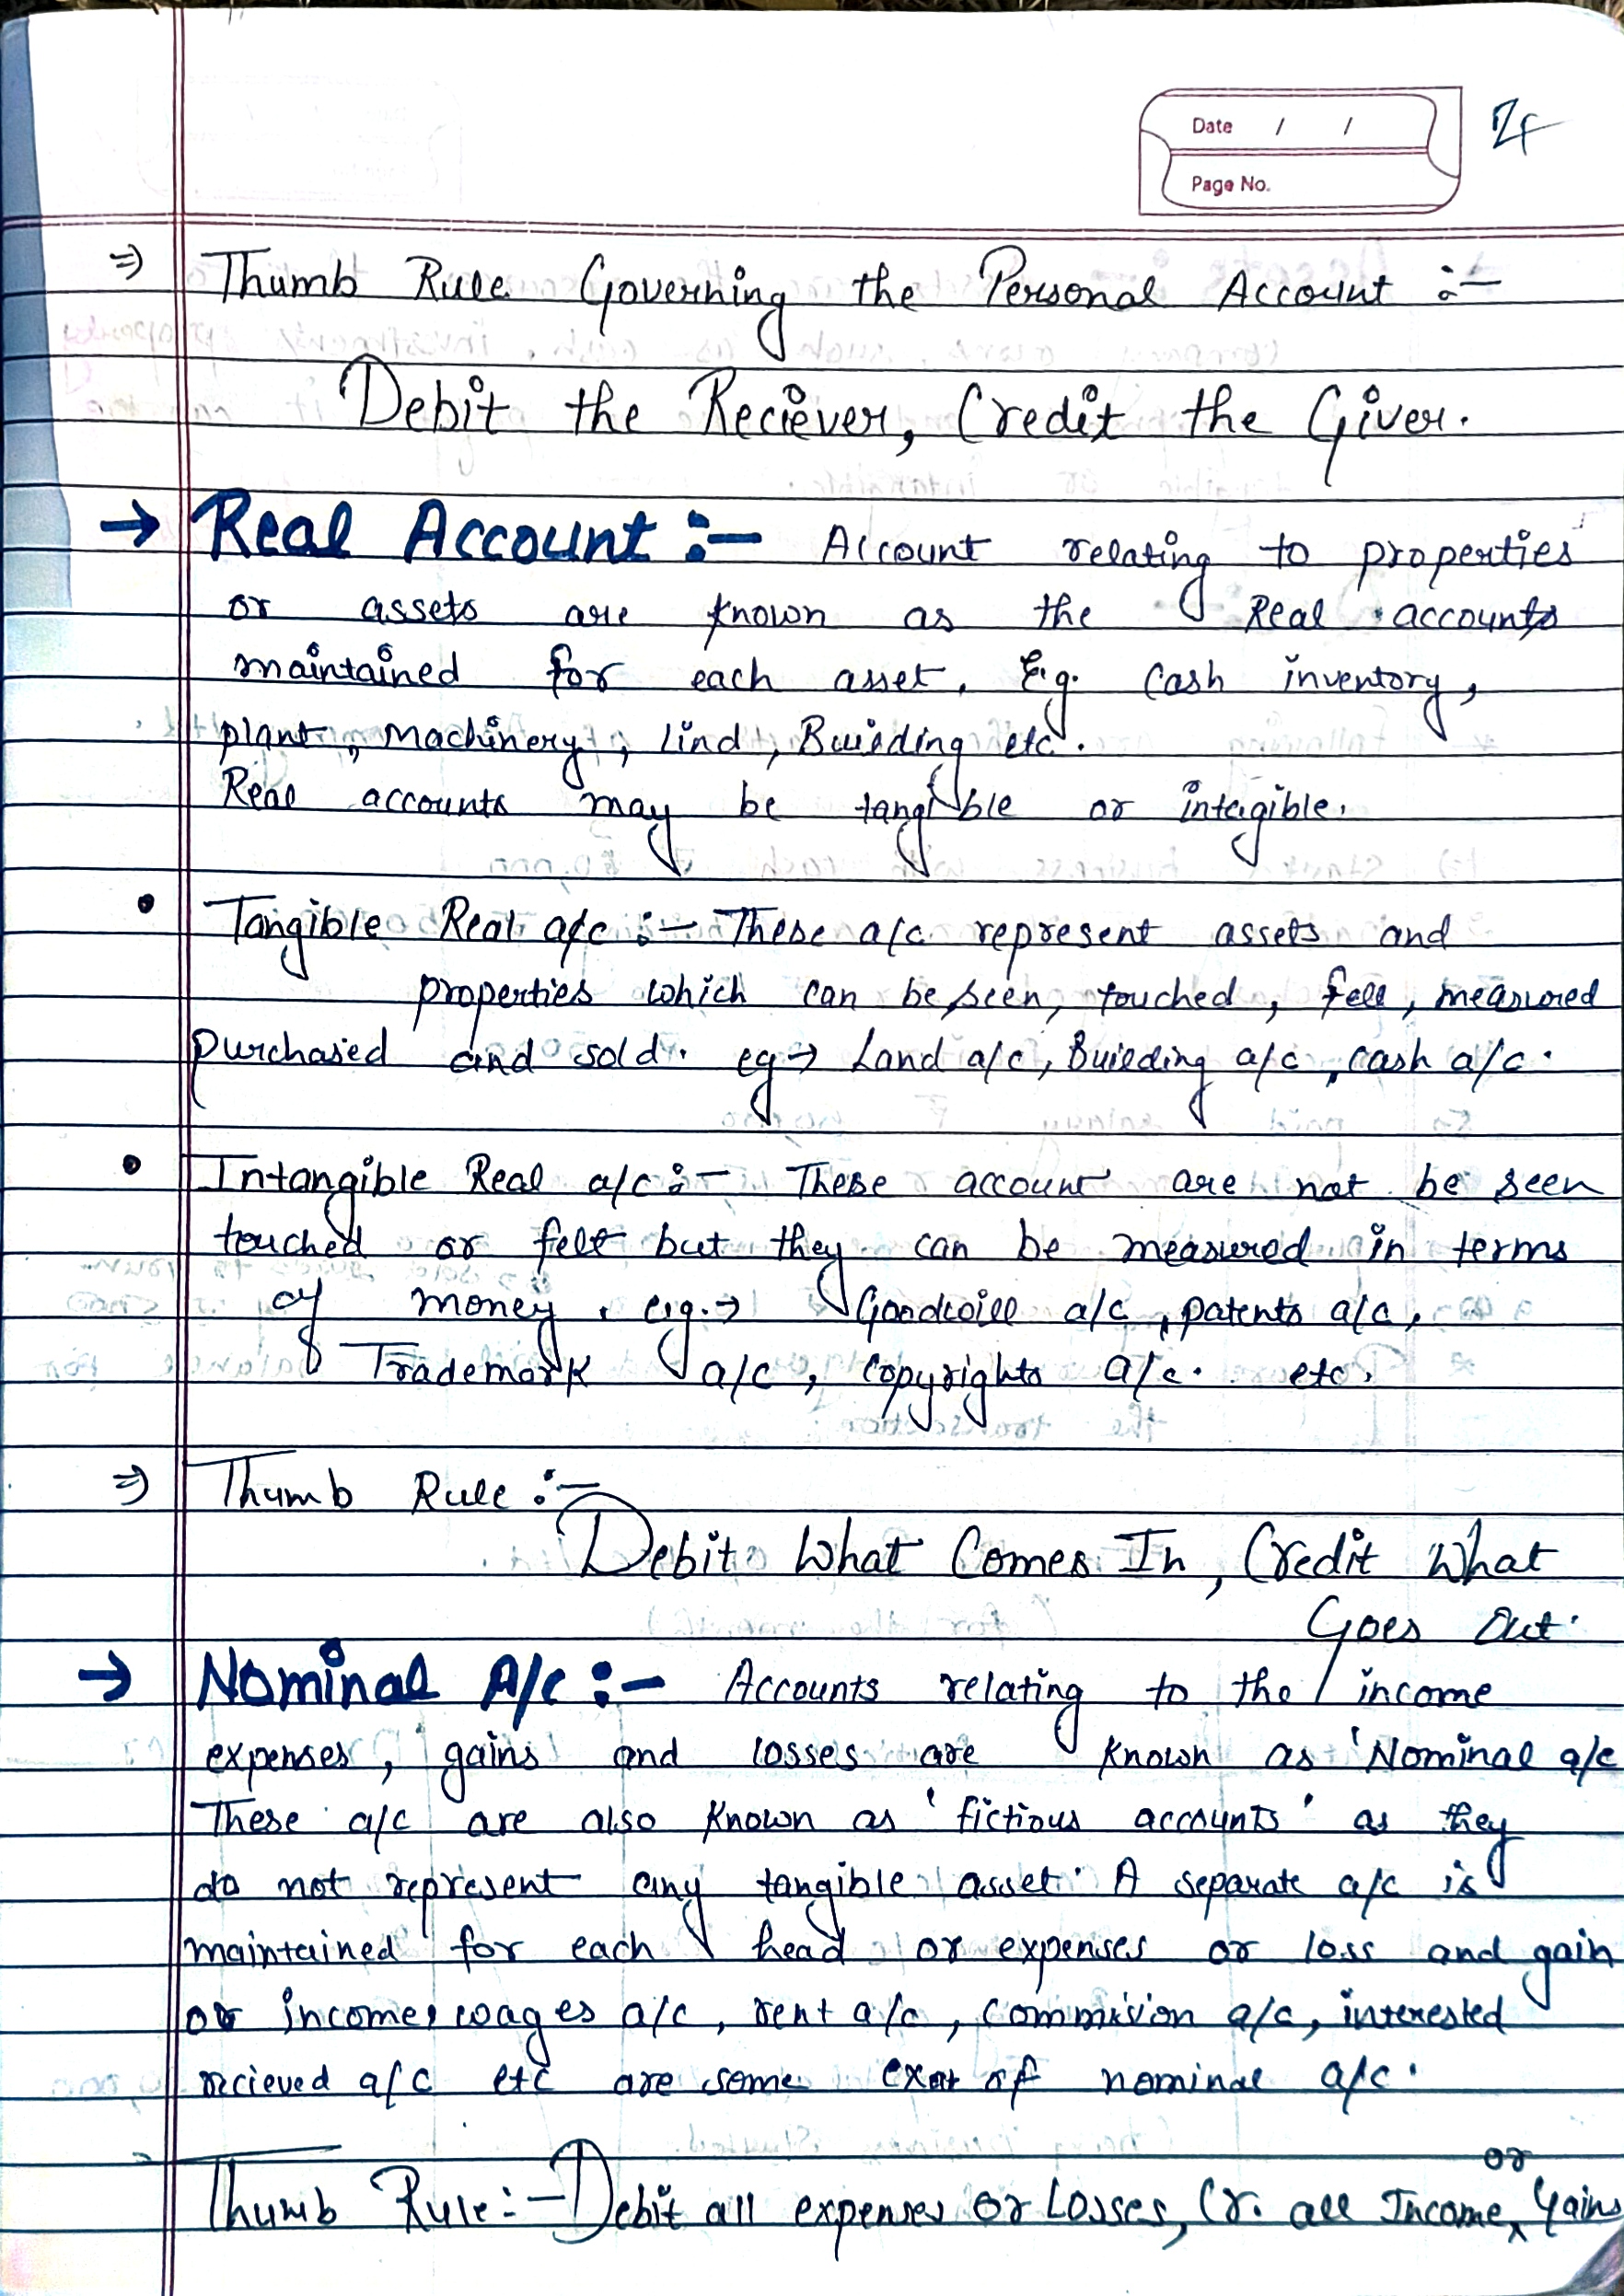 Date / /
Page No.
24
⇒ Thumb Rule Governing the Personal Account :-
Debit the Reciever, Credit the Giver.
→ Real Account :- Account relating to properties
or assets are known as the Real accounts
maintained for each asset. E.g. Cash inventory,
plant, Machinery, Lind, Building etc.
Real accounts may be tangible or intagible.
• Tangible Real a/c :- These a/c represent assets and
properties which can be seen, touched, fell, measured
purchased and sold. eg → Land a/c, Building a/c, cash a/c.
• Intangible Real a/c :- These account are not be seen
touched or felt but they can be measured in terms
of money. e.g. → Goodwill a/c, patents a/c,
Trademark a/c, copyrights a/c. etc.
⇒ Thumb Rule :-
Debit What Comes In, Credit What
Goes Out.
→ Nominal A/c :- Accounts relating to the income
expenses, gains and losses are known as 'Nominal a/c
These a/c are also known as 'fictious accounts' as they
do not represent any tangible asset. A separate a/c is
maintained for each head or expenses or loss and gain
or income, wages a/c, rent a/c, Commission a/c, interested
recieved a/c etc are some of nominal a/c.
or
Thumb Rule :- Debit all expenses or Losses, Cr. all Income, Gains